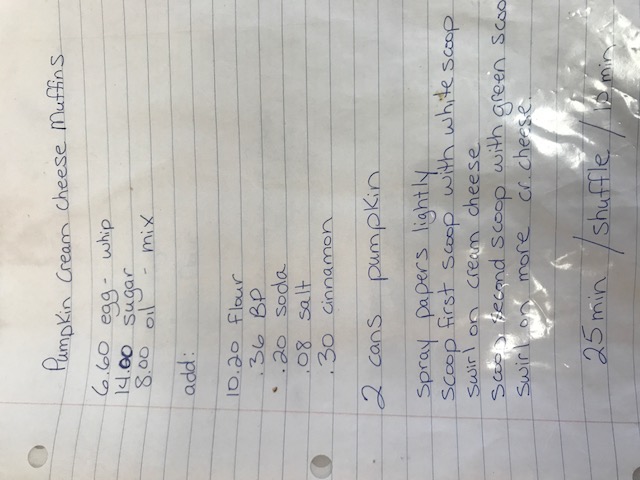 Pumpkin Cream Cheese Muffins
6.60 egg - whip
14.00 sugar
8.00 oil - mix
add:
10.20 flour
.36 BP
.20 soda
.08 salt
.30 cinnamon
2 cans pumpkin
spray papers lightly
scoop first scoop with white scoop
swirl on cream cheese
scoop second scoop with green scoo
swirl on more cr. cheese.
25 min / shuffle / 10 min